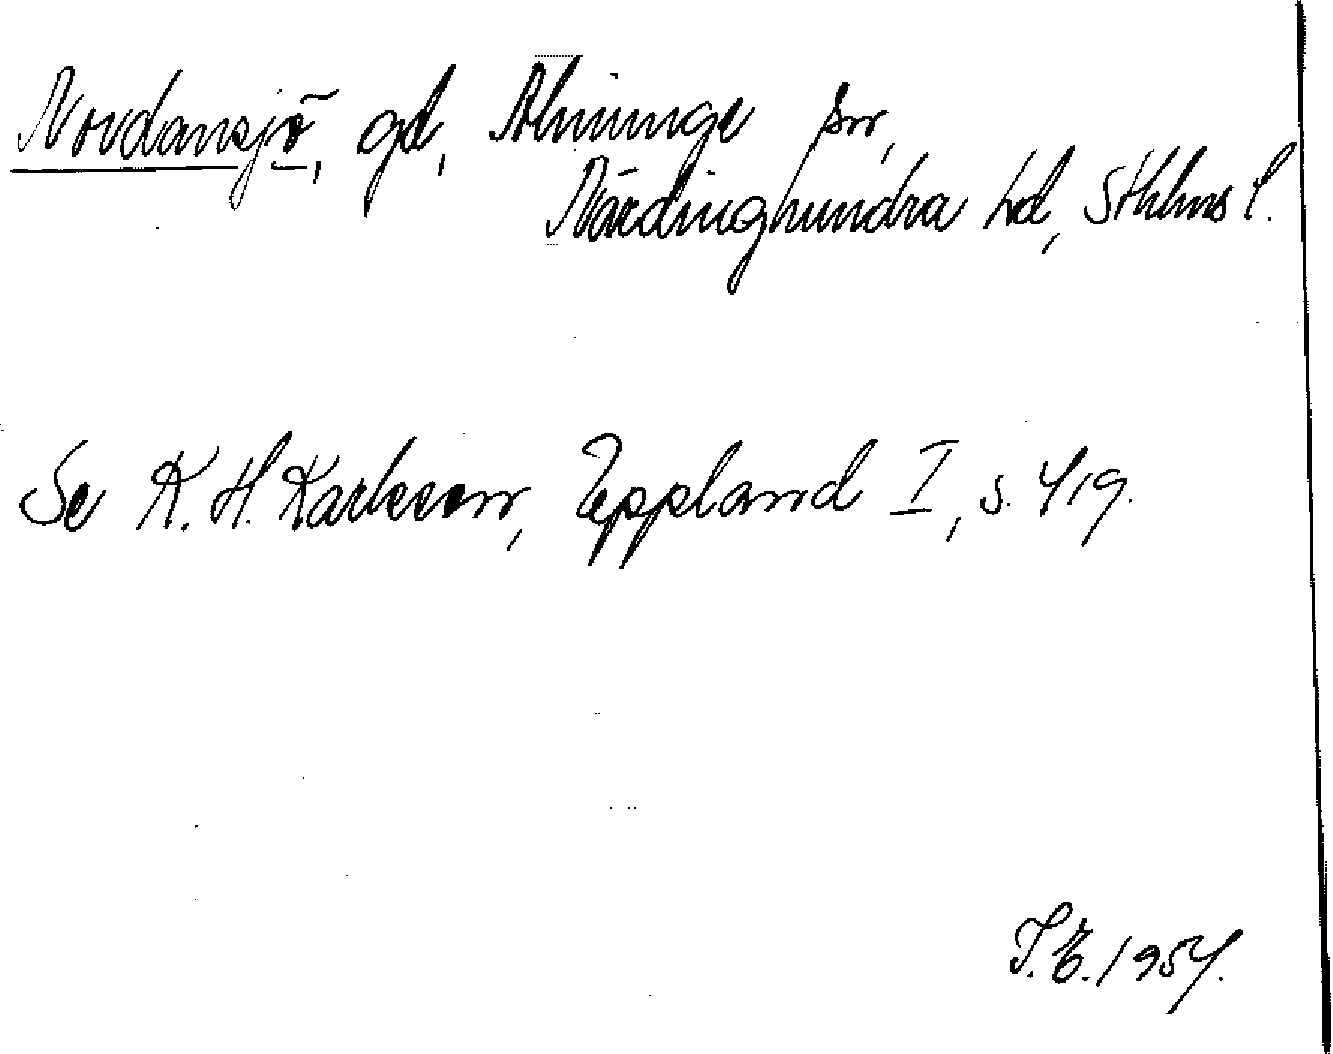 Nordansjö, gd, Almunge sn,
Närdinghundra hd, Sthlms l.
Se K. H. Karlsson, Uppland I, s. 419.
I. E. 1954.